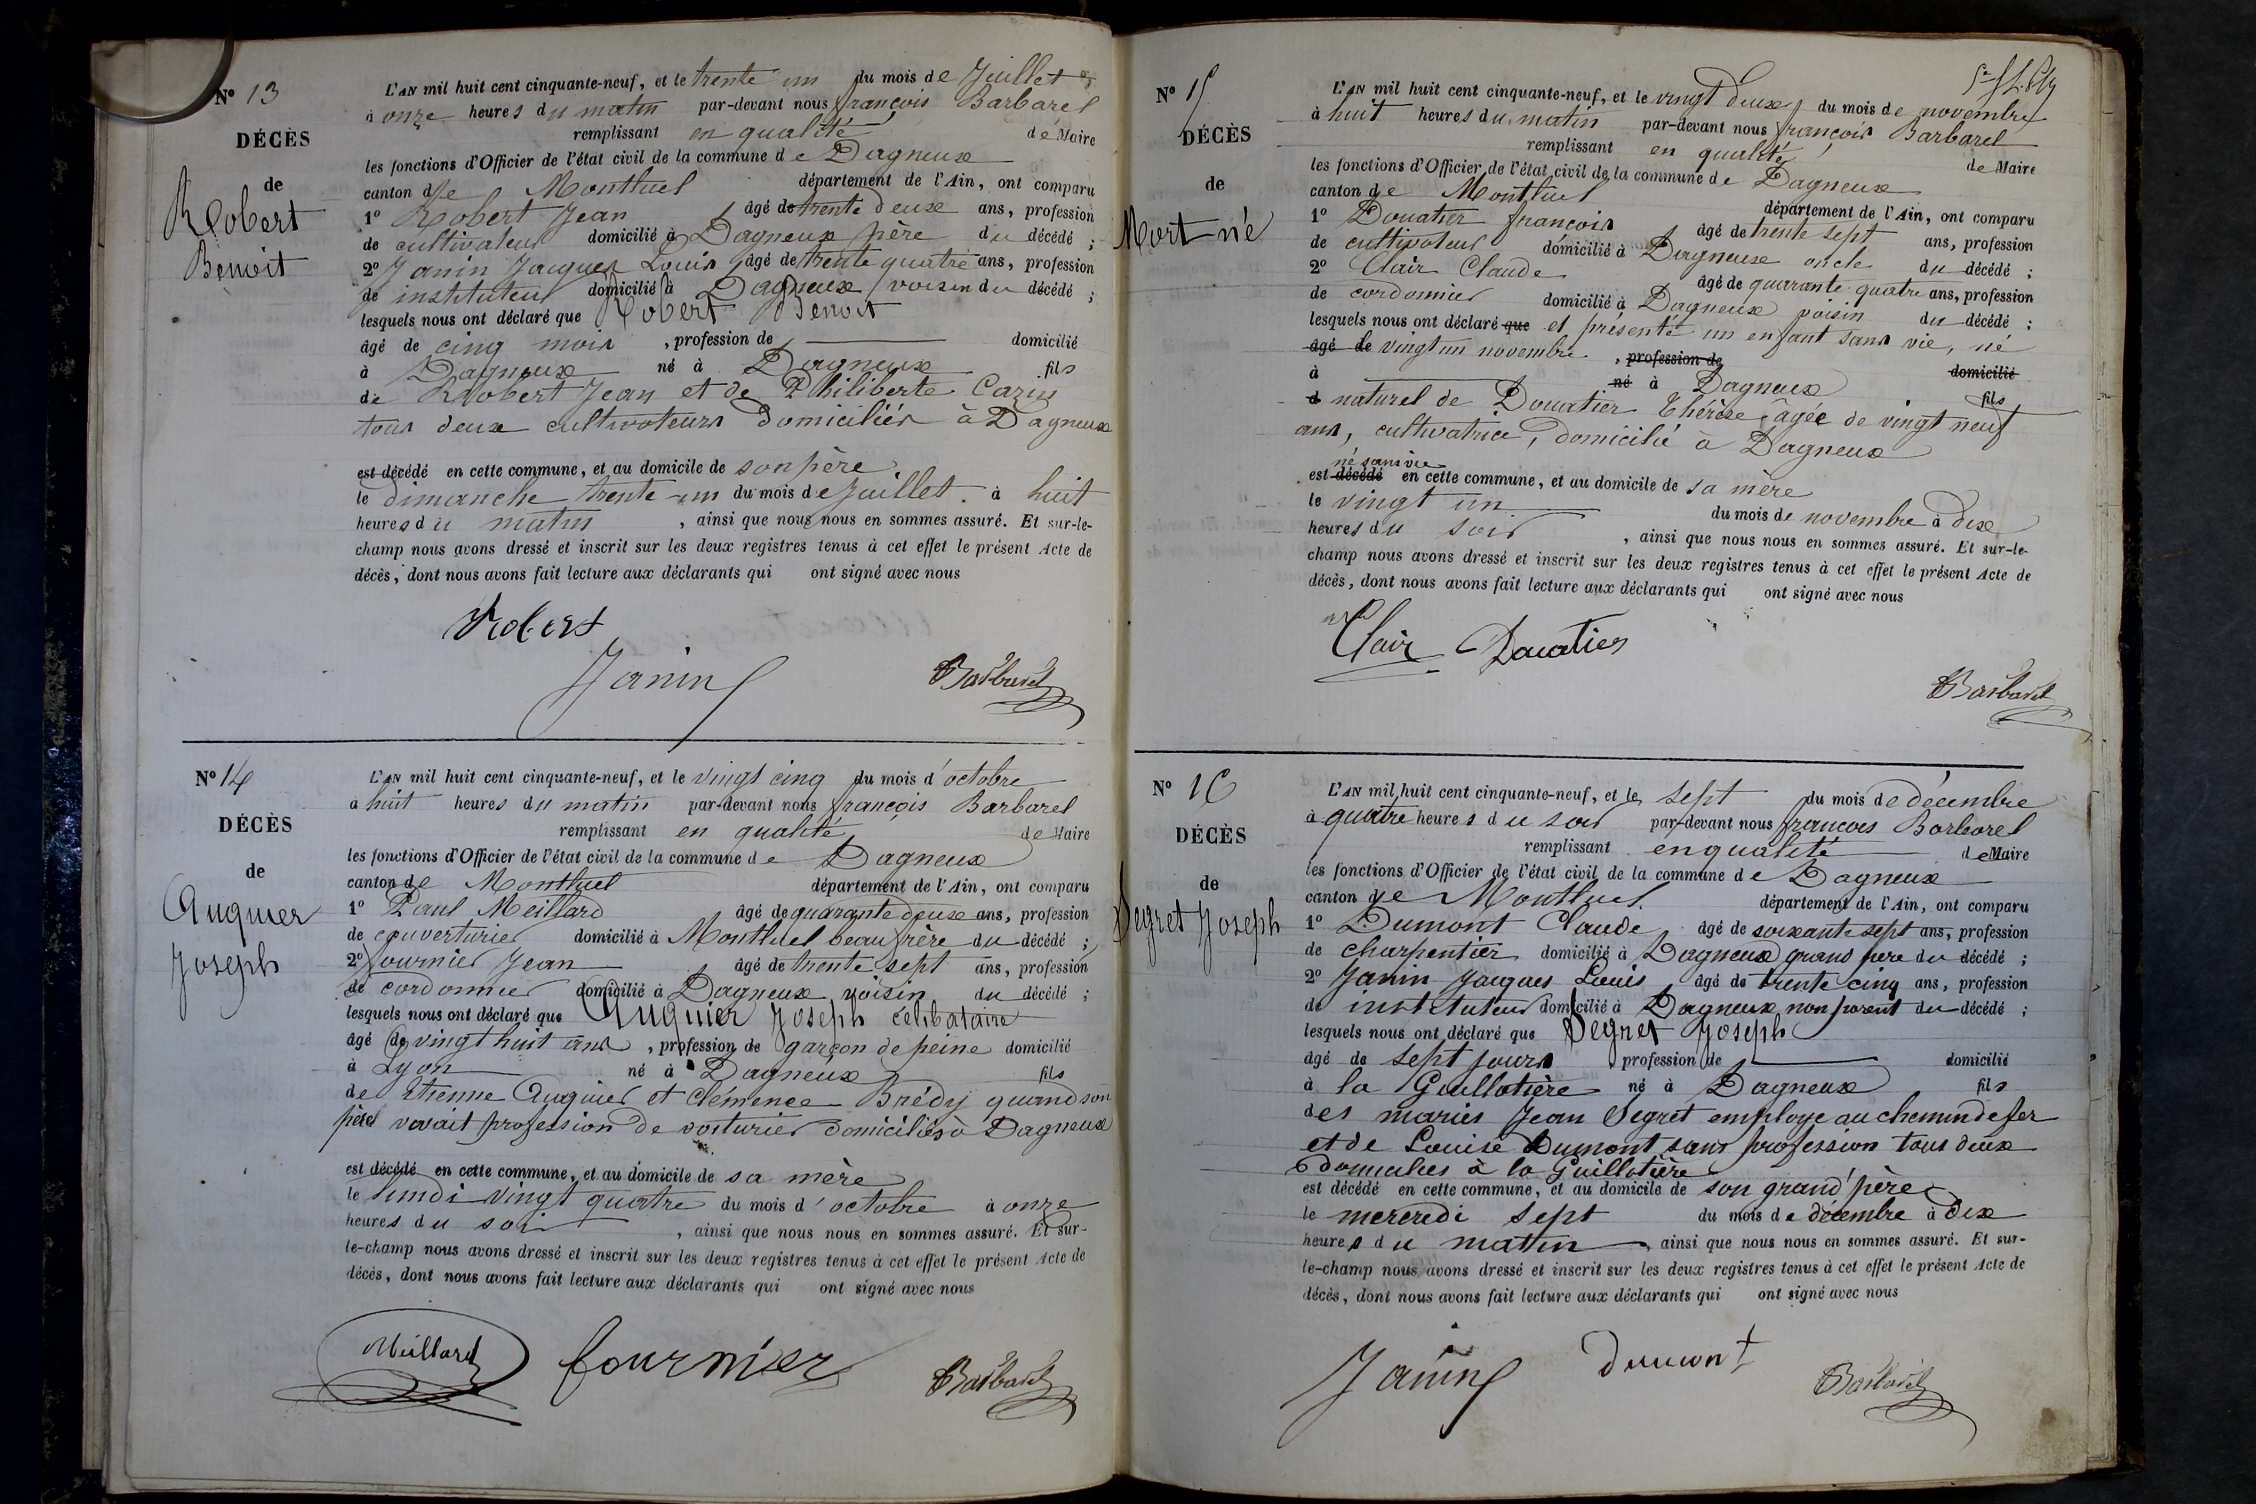 N° 13
DÉCÈS
de
Robert
Benoit
L'AN mil huit cent cinquante-neuf, et le trente un du mois de Juillet
à onze heures du matin par-devant nous françois Barbarel
remplissant en qualité de Maire
les fonctions d'Officier de l'état civil de la commune de Dagneux
canton de Montluel département de l'Ain, ont comparu
1° Robert Jean âgé de trente deux ans, profession
de cultivateur domicilié à Dagneux père du décédé ;
2° Janin Jacques Louis âgé de trente quatre ans, profession
de instituteur domicilié à Dagneux voisin du décédé ;
lesquels nous ont déclaré que Robert Benoit
âgé de cinq mois , profession de domicilié
à Dagneux né à Dagneux fils
de Robert Jean et de Philiberte Cazin
tous deux cultivateurs domiciliés à Dagneux
est décédé en cette commune, et au domicile de son père
le dimanche trente-un du mois de Juillet à huit
heures du matin , ainsi que nous nous en sommes assuré. Et sur-le-
champ nous avons dressé et inscrit sur les deux registres tenus à cet effet le présent Acte de
décès, dont nous avons fait lecture aux déclarants qui ont signé avec nous
Robert
Janin
Barbarel
N° 14
DÉCÈS
de
Auguier
Joseph
L'AN mil huit cent cinquante-neuf, et le vingt cinq du mois d'octobre
à huit heures du matin par-devant nous françois Barbarel
remplissant en qualité de Maire
les fonctions d'Officier de l'état civil de la commune de Dagneux
canton de Montluel département de l'Ain, ont comparu
1° Paul Meillard âgé de quarante deux ans, profession
de couverturier domicilié à Montluel beau frère du décédé ;
2° fournier Jean âgé de trente sept ans, profession
de cordonnier domicilié à Dagneux voisin du décédé ;
lesquels nous ont déclaré que Auguier Joseph célibataire
âgé de vingt huit ans , profession de garçon de peine domicilié
à Lyon né à Dagneux fils
de Etienne Auguier et Clémence Brédy quand son
père vivait profession de voiturier domiciliés à Dagneux
est décédé en cette commune, et au domicile de sa mère
le lundi vingt quatre du mois d'octobre à onze
heures du soir , ainsi que nous nous en sommes assuré. Et sur-
le-champ nous avons dressé et inscrit sur les deux registres tenus à cet effet le présent Acte de
décès, dont nous avons fait lecture aux déclarants qui ont signé avec nous
Meillard fournier Barbarel
N° 15
DÉCÈS
de
Mort-né
L'AN mil huit cent cinquante-neuf, et le vingt deux du mois de novembre
à huit heures du matin par-devant nous françois Barbarel
remplissant en qualité de Maire
les fonctions d'Officier de l'état civil de la commune de Dagneux
canton de Montluel département de l'Ain, ont comparu
1° Douatier françois âgé de trente sept ans, profession
de cultivateur domicilié à Dagneux oncle du décédé ;
2° Clair Claude âgé de quarante quatre ans, profession
de cordonnier domicilié à Dagneux voisin du décédé ;
lesquels nous ont déclaré que et présenté un enfant sans vie, né
âgé de vingt un novembre , profession de domicilié
à né à Dagneux fils
d naturel de Douatier Thérèse âgée de vingt neuf
ans, cultivatrice, domicilié à Dagneux
né sans vie
est décédé en cette commune, et au domicile de sa mère
le vingt un du mois de novembre à dix
heures du soir , ainsi que nous nous en sommes assuré. Et sur-le-
champ nous avons dressé et inscrit sur les deux registres tenus à cet effet le présent Acte de
décès, dont nous avons fait lecture aux déclarants qui ont signé avec nous
Clair Douatier
Barbarel
N° 16
DÉCÈS
de
Segret Joseph
L'AN mil huit cent cinquante-neuf, et le sept du mois de décembre
à quatre heures du soir par-devant nous francois Barbarel
remplissant en qualité de Maire
les fonctions d'Officier de l'état civil de la commune de Dagneux
canton de Montluel département de l'Ain, ont comparu
1° Dumont Claude âgé de soixante sept ans, profession
de charpentier domicilié à Dagneux grand père du décédé ;
2° Janin Jacques Louis âgé de trente cinq ans, profession
de instituteur domicilié à Dagneux non parent du décédé ;
lesquels nous ont déclaré que Segret Joseph
âgé de sept jours profession de domicilié
à la Guillotière né à Dagneux fils
des mariés Jean Segret employe au chemin de fer
et de Louise Dumont sans profession tous deux
domiciliés à la Guillotière
est décédé en cette commune, et au domicile de son grand père
le mercredi sept du mois de décembre à dix
heures du matin ainsi que nous nous en sommes assuré. Et sur-
le-champ nous avons dressé et inscrit sur les deux registres tenus à cet effet le présent Acte de
décès, dont nous avons fait lecture aux déclarants qui ont signé avec nous
Janin Dumont Barbarel